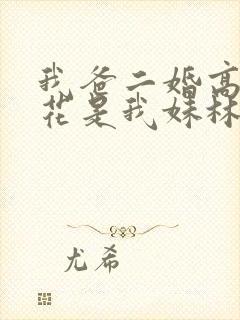 我爸二婚高
花是我妹林
尤希